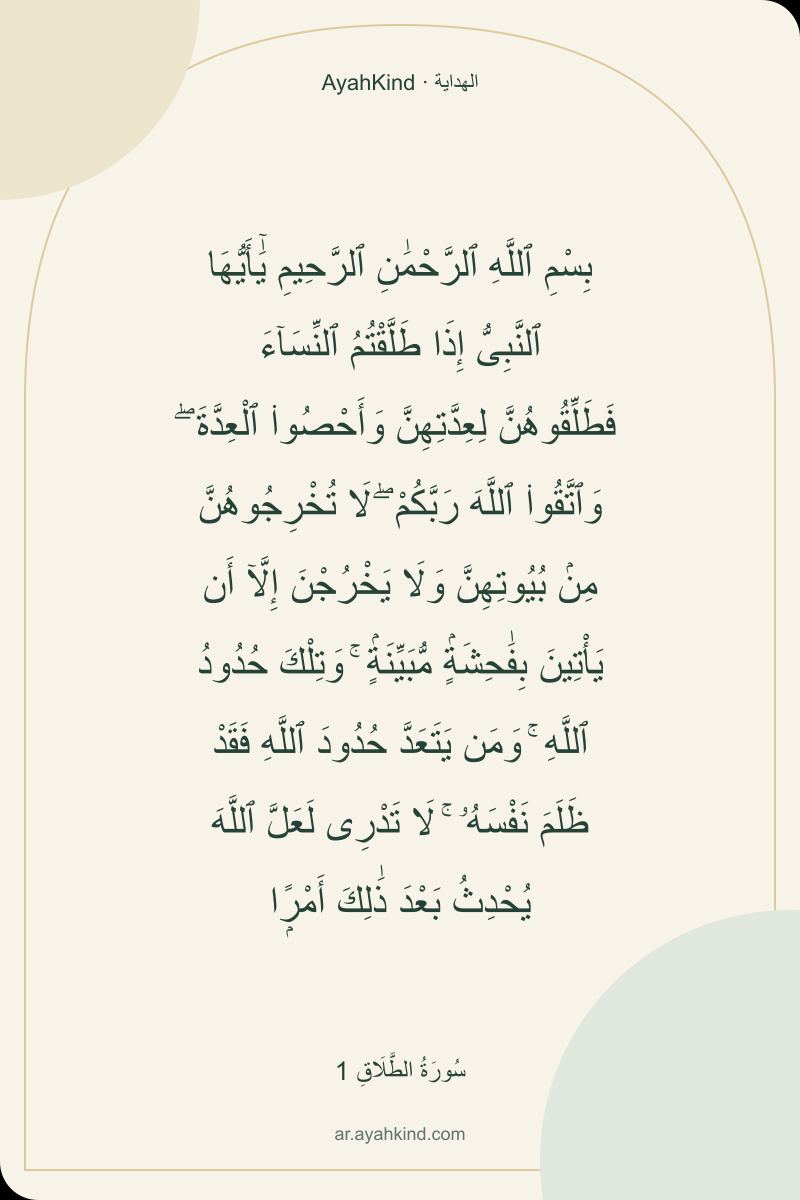 AyahKind · الهداية
بِسْمِ ٱللَّهِ ٱلرَّحْمَٰنِ ٱلرَّحِيمِ يَٰٓأَيُّهَا
ٱلنَّبِىُّ إِذَا طَلَّقْتُمُ ٱلنِّسَآءَ
فَطَلِّقُوهُنَّ لِعِدَّتِهِنَّ وَأَحْصُوا۟ ٱلْعِدَّةَ ۖ
وَٱتَّقُوا۟ ٱللَّهَ رَبَّكُمْ ۖ لَا تُخْرِجُوهُنَّ
مِنۢ بُيُوتِهِنَّ وَلَا يَخْرُجْنَ إِلَّآ أَن
يَأْتِينَ بِفَٰحِشَةٍۢ مُّبَيِّنَةٍۢ ۚ وَتِلْكَ حُدُودُ
ٱللَّهِ ۚ وَمَن يَتَعَدَّ حُدُودَ ٱللَّهِ فَقَدْ
ظَلَمَ نَفْسَهُۥ ۚ لَا تَدْرِى لَعَلَّ ٱللَّهَ
يُحْدِثُ بَعْدَ ذَٰلِكَ أَمْرًۭا
سُورَةُ الطَّلَاقِ 1
ar.ayahkind.com